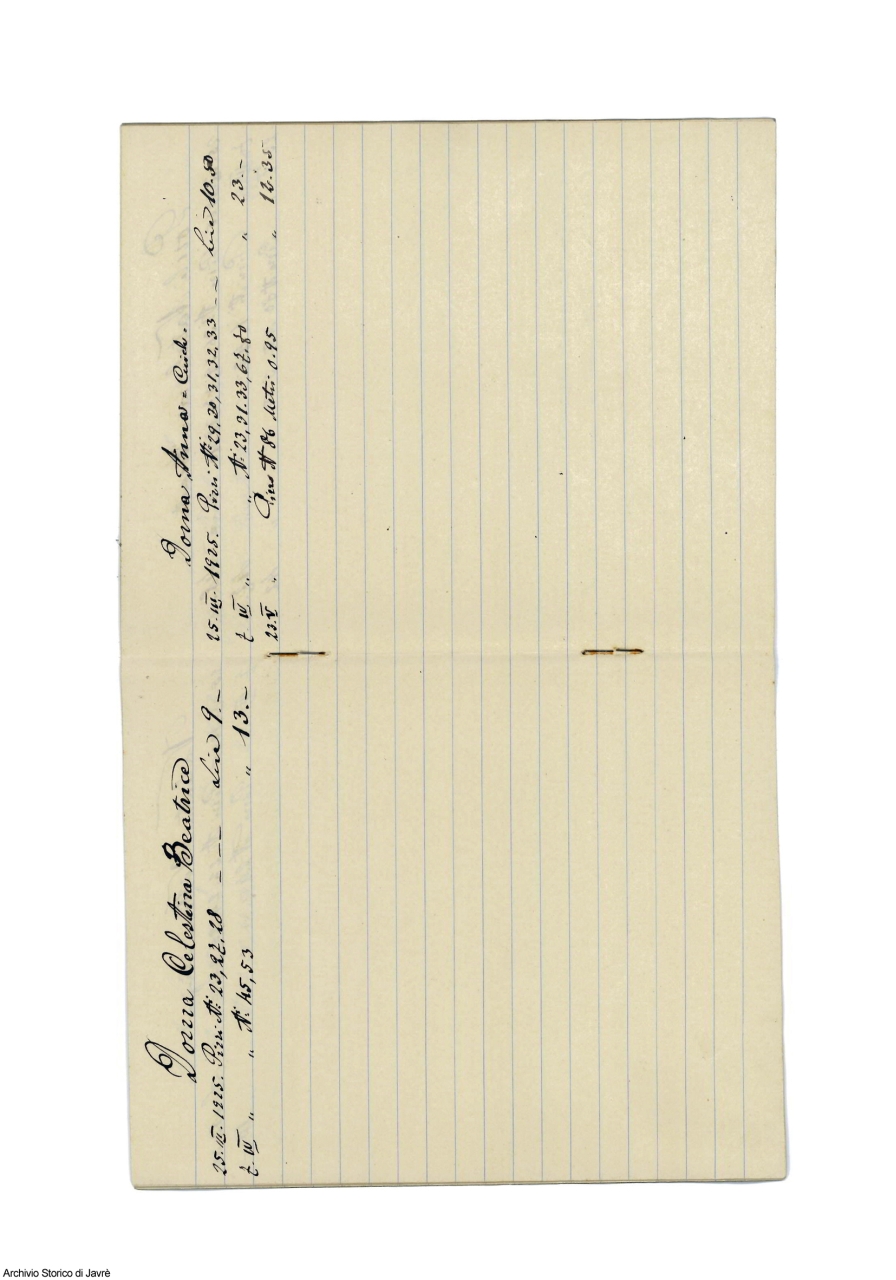 Dorna Celestina Beatrice
25.III. 1925. Pezzi N: 23, 27. 28 - -- Lire 9. -
7. IV " " N: 45, 53 " 13. -
Dorna Anna =
25. III. 1925. Pezzi N: 29, 30, 31. 32. 33 - - Lire 10.50
7 IV " " N: 23, 31. 33, 67. 80 " 23. -
23. V " N 86 Metri 0.95 " 12.35
Archivio Storico di Javrè